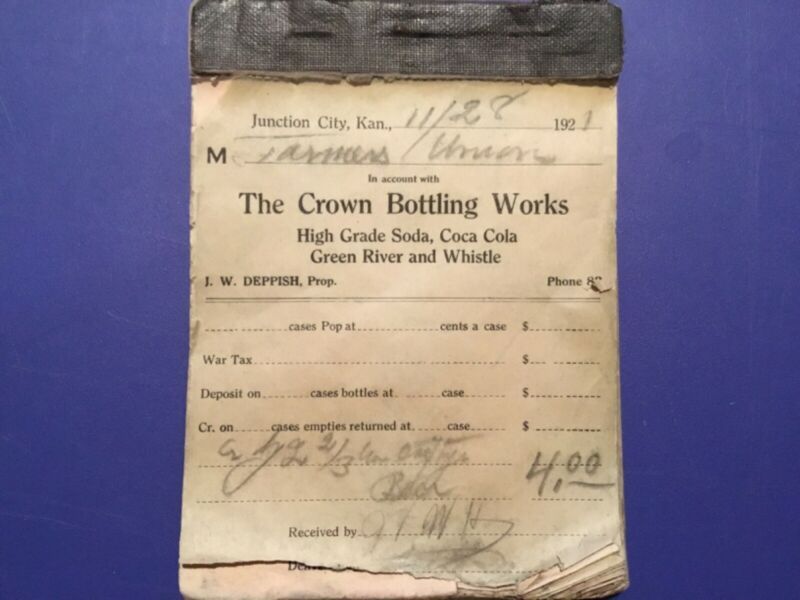 Junction City, Kan., 11/28 1921
M Farmers Union
In account with
The Crown Bottling Works
High Grade Soda, Coca Cola
Green River and Whistle
J. W. DEPPISH, Prop. Phone
cases Pop at cents a case $
War Tax $
Deposit on cases bottles at case $
Cr. on cases empties returned at case $
2/3
4.00
Received by